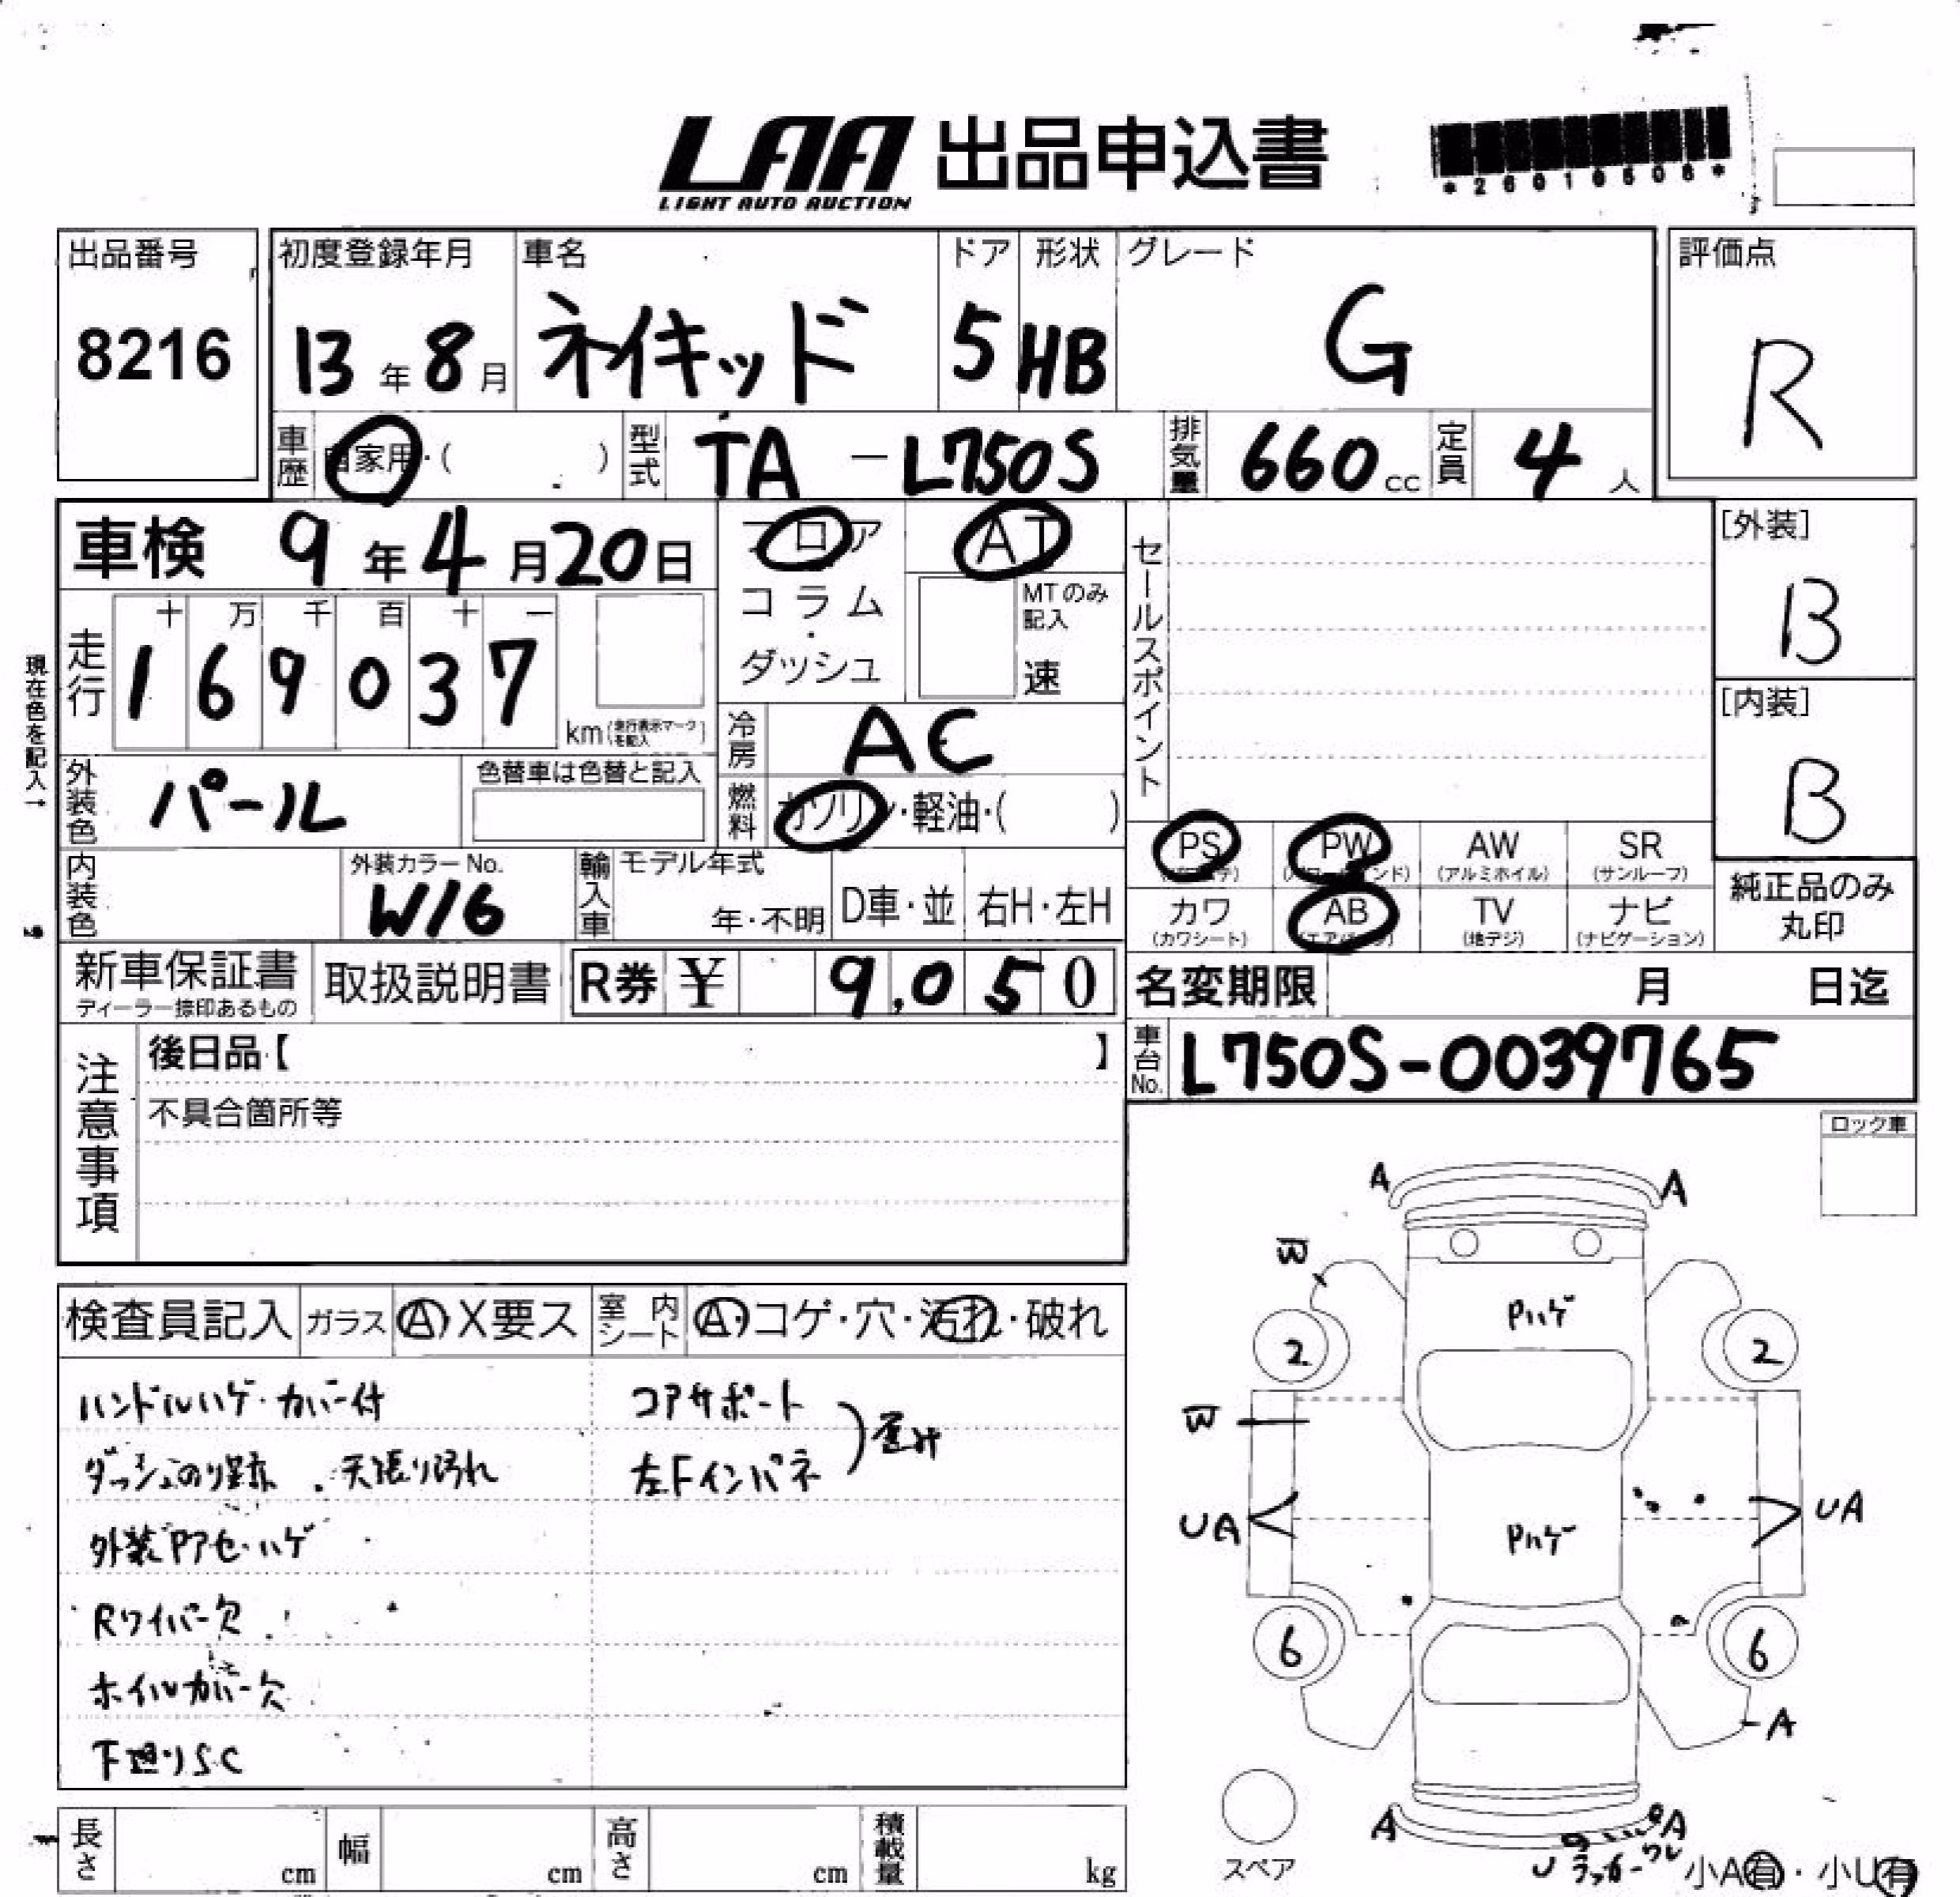 LAA 出品申込書
LIGHT AUTO AUCTION
*26010508*
出品番号
8216
初度登録年月
13年8月
車名
ネイキッド
ドア
5
形状
HB
グレード
G
評価点
R
車歴 自家用・( )
型式 TA-L750S
排気量 660cc
定員 4人
車検 9年4月20日
フロア
コラム
・
ダッシュ
AT
MTのみ記入
速
セールスポイント
[外装]
B
[内装]
B
現在色を記入↑
走行
十 万 千 百 十 一
1 6 9 0 3 7
km(走行表示マークを記入)
冷房 AC
燃料 ガソリン・軽油・( )
外装色 パール
色替車は色替と記入
内装色
外装カラーNo.
W16
輸入車 モデル年式
年・不明
D車・並
右H・左H
PS (パワステ)
PW (パワーウインド)
AW (アルミホイル)
SR (サンルーフ)
カワ (カワシート)
AB (エアバッグ)
TV (地デジ)
ナビ (ナビゲーション)
純正品のみ
丸印
新車保証書
ディーラー捺印あるもの
取扱説明書
R券 ¥ 9,050
名変期限 月 日迄
車台No. L750S-0039765
注意事項
後日品【 】
不具合箇所等
ロック車
検査員記入
ガラス Ⓐ X要ス
室内シート Ⓐ・コゲ・穴・汚れ・破れ
ハンドルハゲ・カバー付
ダッシュのり跡・天張り汚れ
外装Pアセ・ハゲ
Rワイパー欠
ホイルカバー欠
下廻りSC
コアサポート
左Fインパネ
歪み
A A
W
Pハゲ
2 2
W
UA UA
Pハゲ
6 6
A
A A
U
スペア
小A有・小U有
長さ cm
幅 cm
高さ cm
積載量 kg